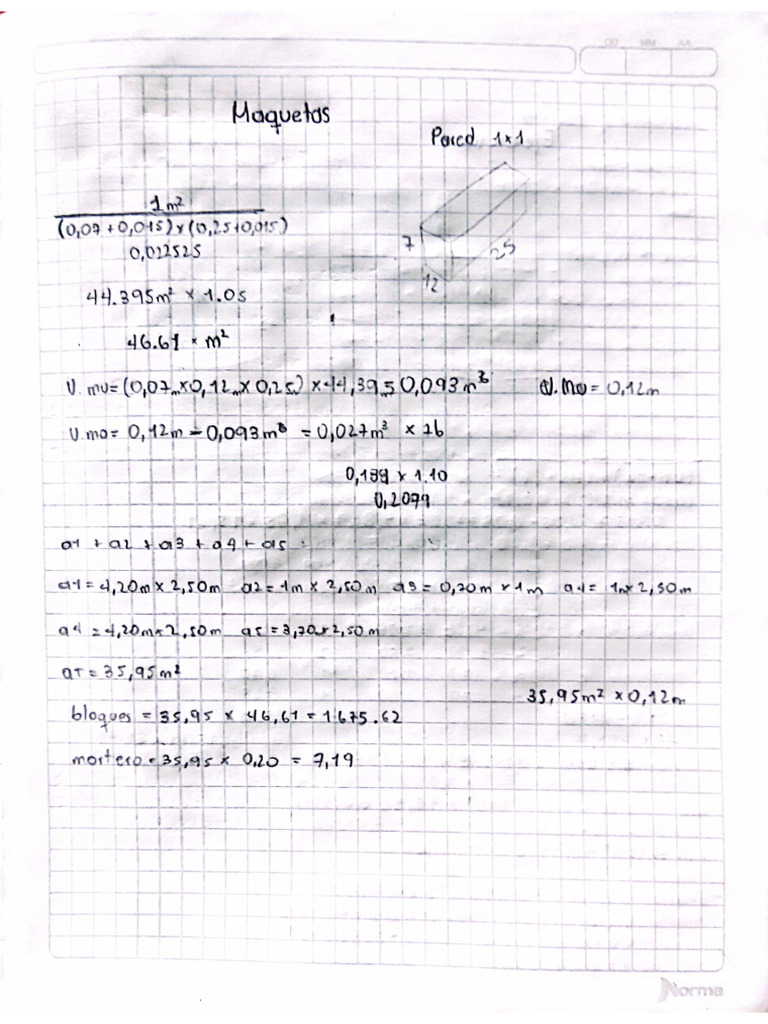 DD MM AA
Maquetas
Pared 1x1
1m²
(0,07 + 0,015) x (0,25 + 0,015)
0,022525
7
25
12
44.395m² x 1.05
46.61 x m²
V. mu = (0,07m x 0,12m x 0,25) x 44,395 0,093m³
V. mo = 0,12m
V. mo = 0,12m - 0,093m³ = 0,027m³ x 76
0,199 x 1.10
0,2099
a1 + a2 + a3 + a4 + a5
a1 = 4,20m x 2,50m a2 = 1m x 2,50m a3 = 0,70m x 1m a4 = 1m x 2,50m
a4 = 4,20m x 2,50m a5 = 3,70 x 2,50m
aT = 35,95m²
35,95m² x 0,12m
bloques = 35,95 x 46,61 = 1675.62
mortero = 35,95 x 0,20 = 7,19
Norma